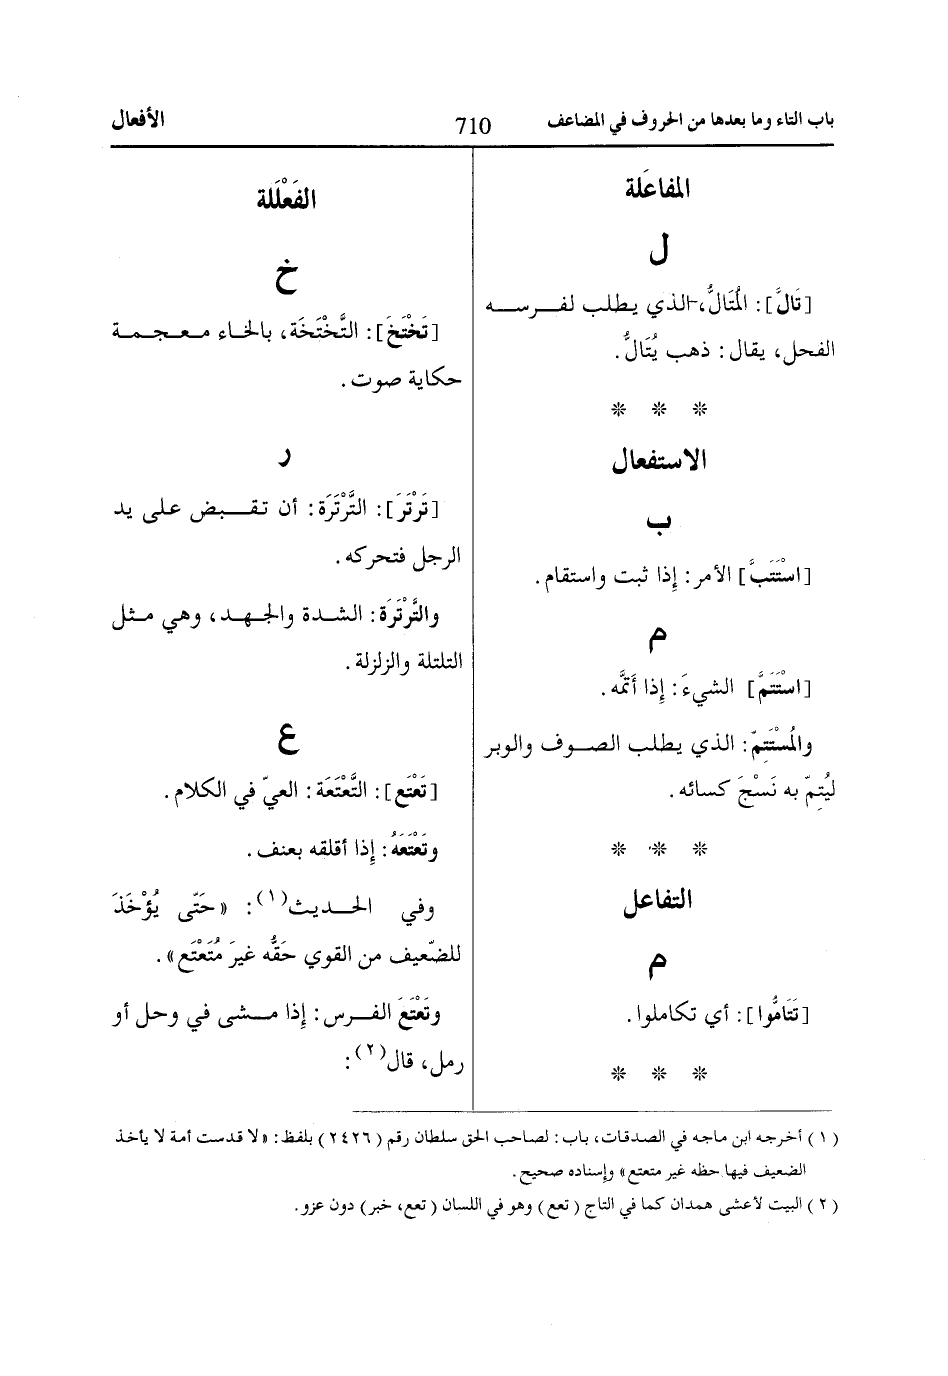 باب التاء وما بعدها من الحروف في المضاعف 710 الأفعال
المفاعَلة
ل
[تَالَّ]: المُتَالُّ، الذي يطلب لفرسه
الفحل، يقال: ذهب يُتَالُّ.
* * *
الاستفعال
ب
[اسْتَتَبَّ] الأمر: إِذا ثبت واستقام.
م
[اسْتَتَمَّ] الشيءَ: إِذا أَتمَّه.
والمُسْتَتِمّ: الذي يطلب الصوف والوبر
ليُتِمّ به نَسْجَ كسائه.
* * *
التفاعل
م
[تَتَامُّوا]: أي تكاملوا.
* * *
الفَعْلَلة
خ
[تَخْتَخَ]: التَّخْتَخَة، بالخاء معجمة
حكاية صوت.
ر
[تَرْتَرَ]: التَّرْتَرَة: أن تقبض على يد
الرجل فتحركه.
والتَّرْتَرَة: الشدة والجهد، وهي مثل
التلتلة والزلزلة.
ع
[تَعْتَع]: التَّعْتَعَة: العيّ في الكلام.
وتَعْتَعَهُ: إِذا أقلقه بعنف.
وفي الحديث(١): «حَتّى يُؤْخَذَ
للضّعيف من القوي حَقُّه غيرَ مُتَعْتَع».
وتَعْتَعَ الفرس: إِذا مشى في وحل أو
رمل، قال(٢):
(١) أخرجه ابن ماجه في الصدقات، باب: لصاحب الحق سلطان رقم (٢٤٢٦) بلفظ: «لا قدست أمة لا يأخذ
الضعيف فيها حظه غير متعتع» وإسناده صحيح.
(٢) البيت لأعشى همدان كما في التاج (تعع) وهو في اللسان (تعع، خبر) دون عزو.